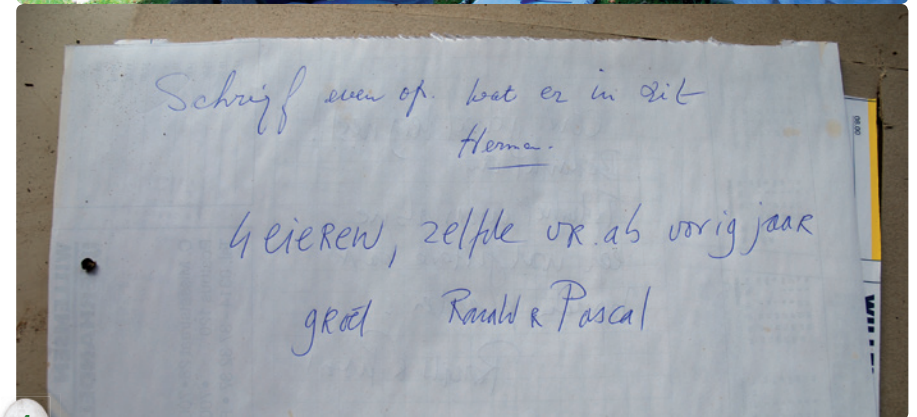 Schrijf even op. wat er in zit
Herman.
4 eieren, zelfde vr. als vorig jaar
groet Ronald & Pascal
06.00